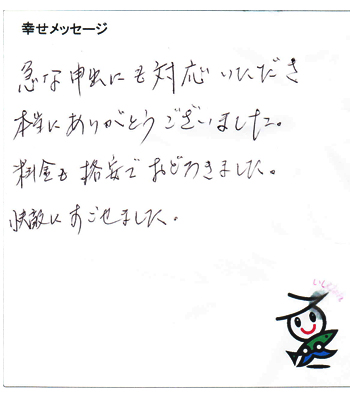 幸せメッセージ
急な申出にも対応いただき
本当にありがとうございました。
料金も格安でおどろきました。
快敵にすごせました。